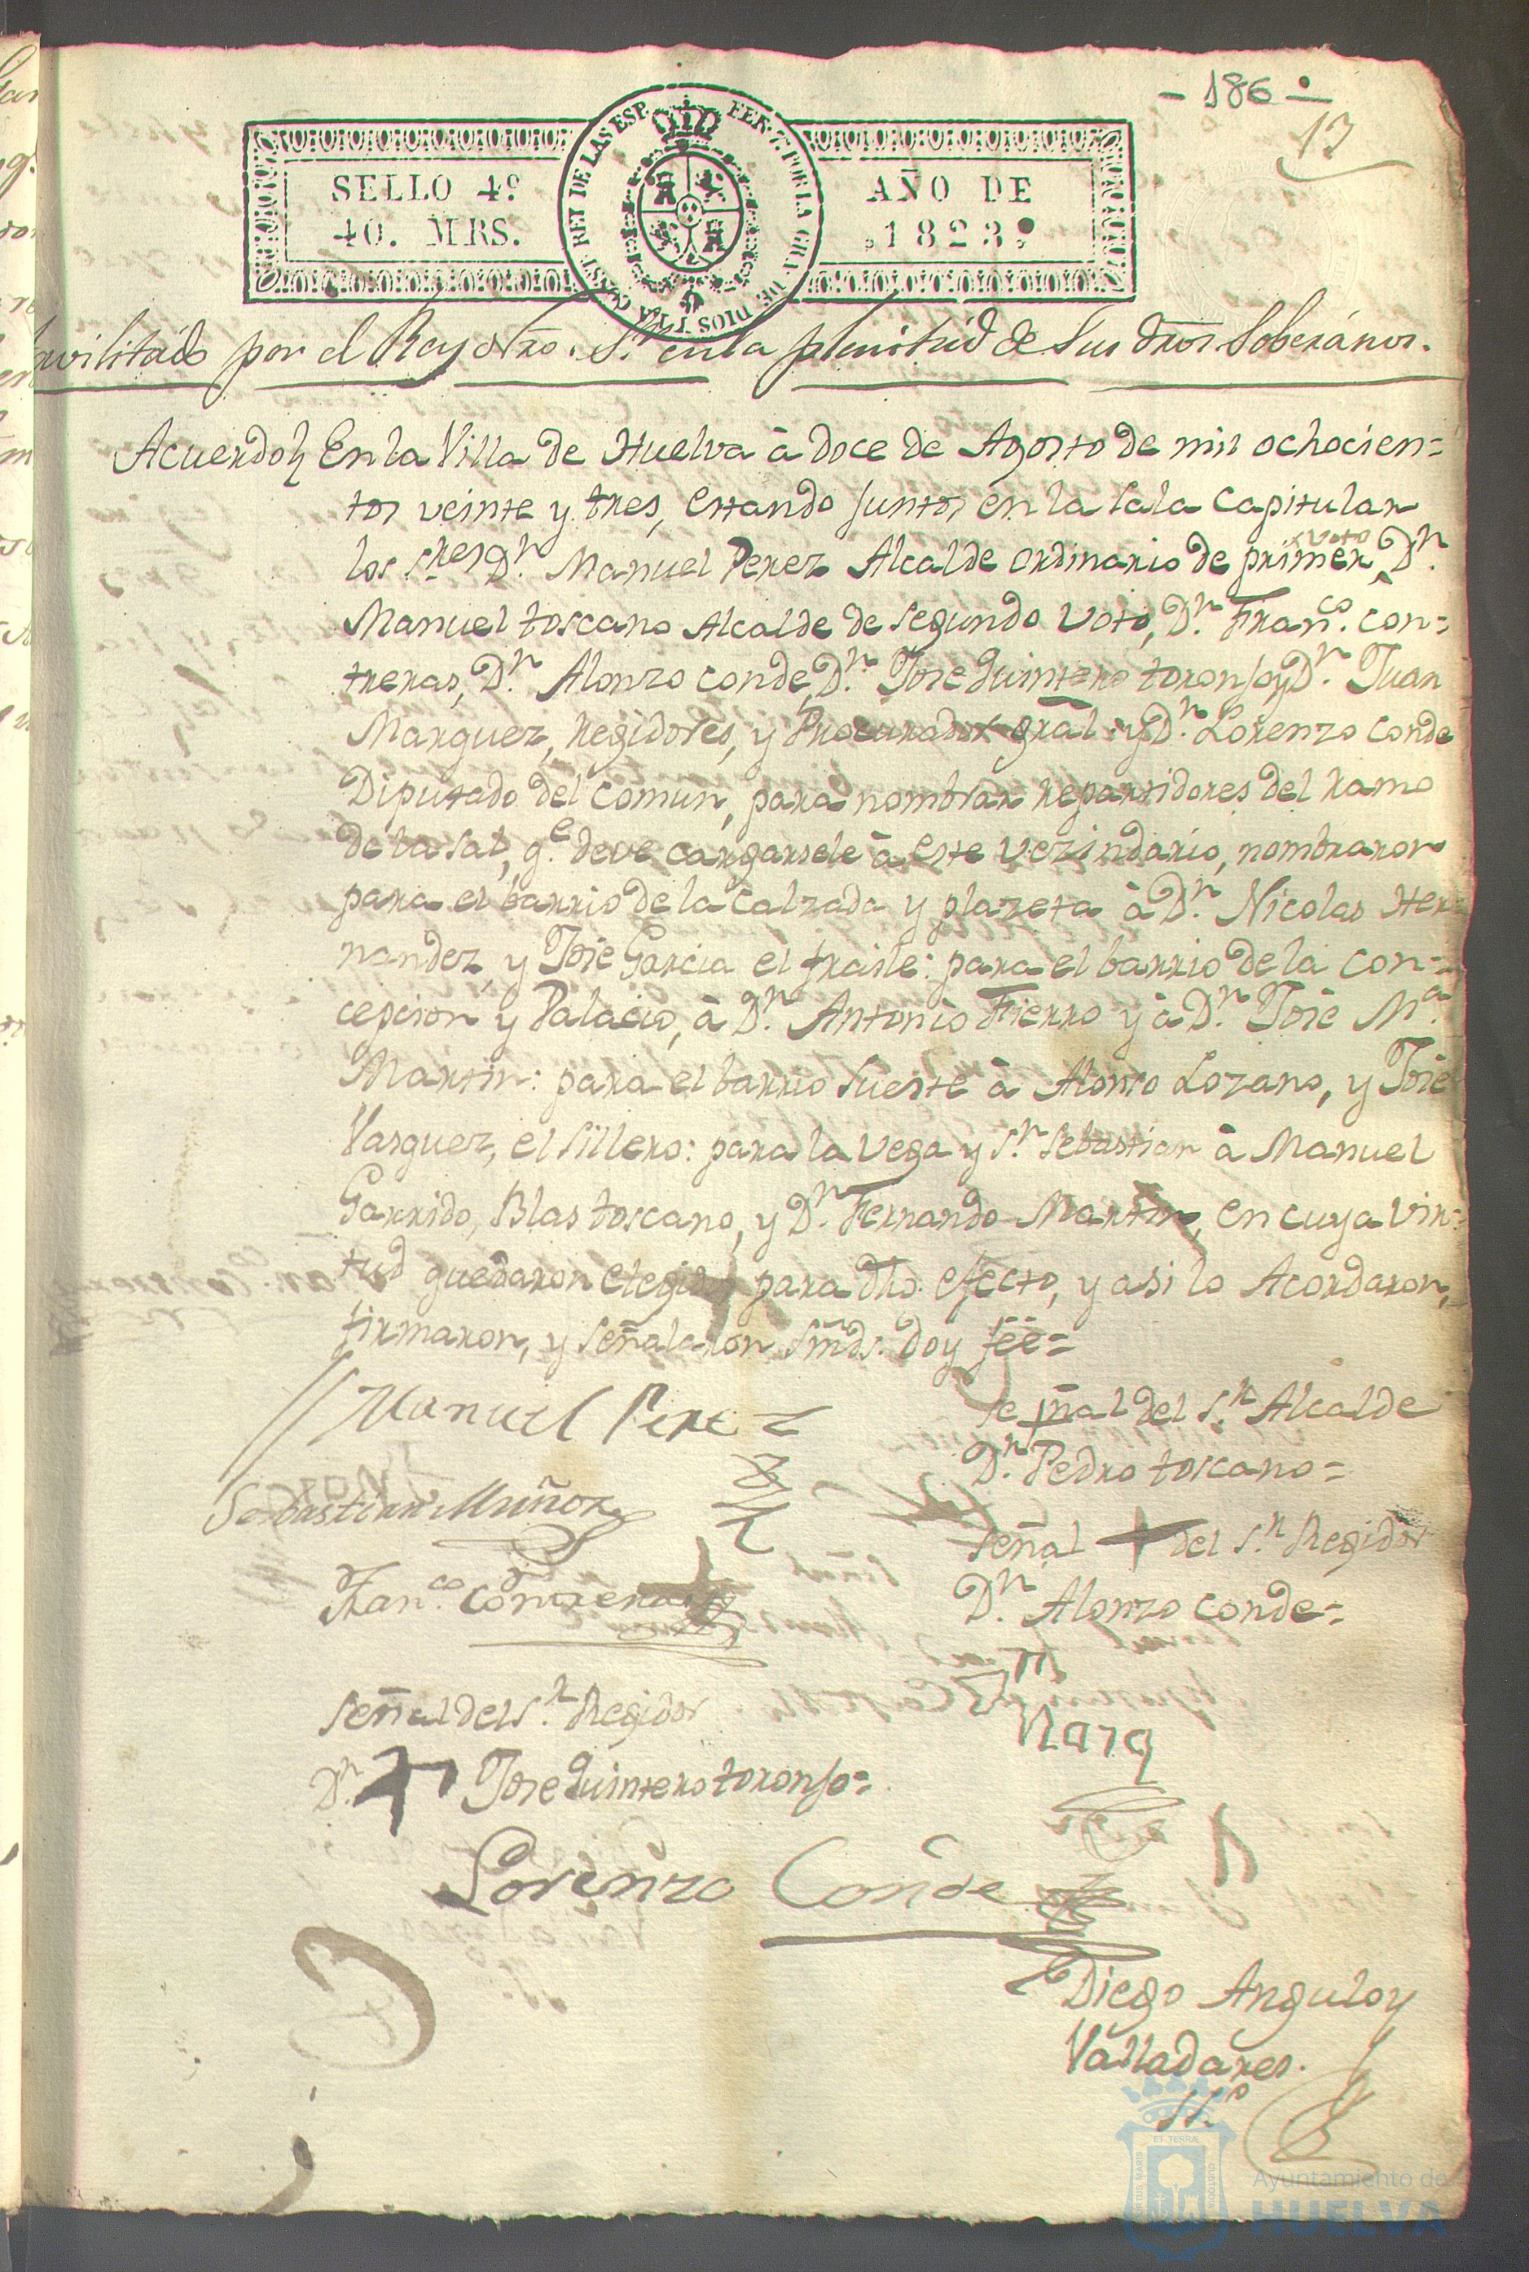 - 186 -
17
SELLO 4º
40. MRS.
FER. 7. POR LA GRA. DE DIOS Y LA CONST. REI DE LAS ESP.
AÑO DE
1823.
havilitado por el Rey Ntro. Sr. en la plenitud de Sus dros. Soberanos.
Acuerdo En la Villa de Huelva à doce de Agosto de mil ochocien=
tos veinte y tres, estando juntos en la sala capitular
voto
los Sres. Dn. Manuel Perez Alcalde ordinario de primer, Dn.
Manuel toscano Alcalde de segundo voto, Dn. Franco. con=
treras, Dn. Alonzo conde, Dn. Jose quintero toronjo y Dn. Juan
Marquez, Regidores, y Procurador gral. y Dn. Lorenzo conde
Diputado del comun, para nombrar repartidores del ramo
de la sal, qe. deve cargarsele à este vezindario, nombraron
para el barrio de la calzada y plazeta à Dn. Nicolas Her
nandez, y Jose Garcia el fraile: para el barrio de la con=
cepcion y Palacio, à Dn. Antonio Fierro y à Dn. Jose Ma.
Martin: para el barrio fuente à Alonso Lozano, y Jose
Vasquez, el sillero: para la vega y Sn. Sebastian à Manuel
Garrido, Blas toscano, y Dn. Fernando Martin, en cuya vir=
tud quedaron elegidos para dho. efecto, y asi lo Acordaron,
firmaron, y señalaron Smds. doy fée=
Manuel Perez
Señal del Sr. Alcalde
Dn. Pedro toscano=
Sebastian Muñoz
Señal + del Sr. Regidor
Dn. Alonzo conde=
Franco. Contreras
Señal del Sr. Regidor
Dn. Jose quintero toronjo=
Lorenzo Conde
Diego Angulo y
Valladares.
Sno.
Ayuntamiento de
HUELVA